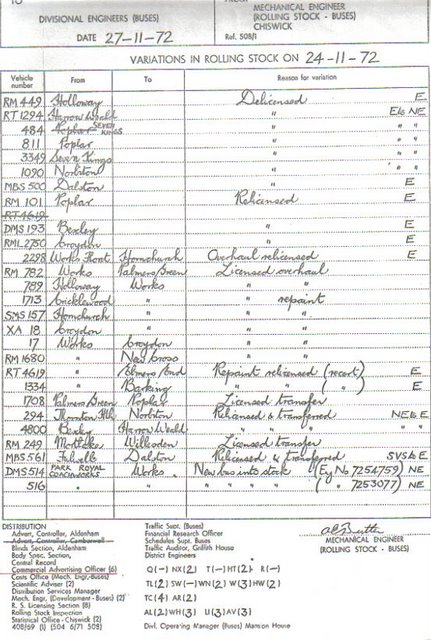 TO
FROM
DIVISIONAL ENGINEERS (BUSES)
MECHANICAL ENGINEER
(ROLLING STOCK - BUSES)
CHISWICK
DATE 27-11-72
Ref. 508/1
VARIATIONS IN ROLLING STOCK ON 24-11-72
Vehicle number From To Reason for variation
RM 449 Holloway Delicensed E
RT 1294 Harrow Weald " E & NE
484 Poplar SEVEN KINGS " " "
811 Poplar " " "
3349 Seven Kings " " "
1090 Norbiton " " "
MBS 500 Dalston " E
RM 101 Poplar Relicensed E
RT 4619
DMS 193 Bexley " E
RML 2750 Croydon " E
2298 Works Float Hornchurch Overhaul relicensed E
RM 782 Works Palmers Green Licensed overhaul
789 Holloway Works " "
1713 Cricklewood " " repaint
SMS 157 Hornchurch " " "
XA 18 Croydon " " "
17 Works Croydon " "
RM 1680 " New Cross " "
RT 4619 " Elmers End Repaint relicensed (recert) E
1334 " Barking " " ( " ) E
1708 Palmers Green Poplar Licensed transfer
294 Thornton Hth Norbiton Relicensed & transferred NE & E
4800 Bexley Harrow Weald " " " "
RM 249 Mortlake Willesden Licensed transfer
MBS 561 Fulwell Dalston Relicensed & transferred SVS & E
DMS 514 PARK ROYAL COACHWORKS Works New bus into stock (Eng No 7254759) NE
516 " " " " " " ( " 7253077) NE
DISTRIBUTION
Advert, Controller, Aldenham
Advert, Controller, Camberwell
Blinds Section, Aldenham
Body Spec, Section,
Central Record
Commercial Advertising Officer (6)
Costs Office (Mech. Engr.-Buses)
Scientific Adviser (2)
Distribution Services Manager
Mech. Engr, (Development - Buses) (2)
R. S. Licensing Section (8)
Rolling Stock Inspection
Statistical Office - Chiswick (2)
408/69 (1) (504 6/71 508)
Traffic Supt. (Buses)
Financial Research Officer
Schedules Supt. Buses
Traffic Auditor, Griffith House
District Engineers
Q(-) NX(2) T(-) HT(2) R(-)
TL(2) SW(-) WN(2) W(3) HW(2)
TC(4) AR(2)
AL(2) WH(3) U(3) AV(3)
Divl. Operating Manager (Buses) Mansion House
MECHANICAL ENGINEER
(ROLLING STOCK - BUSES)